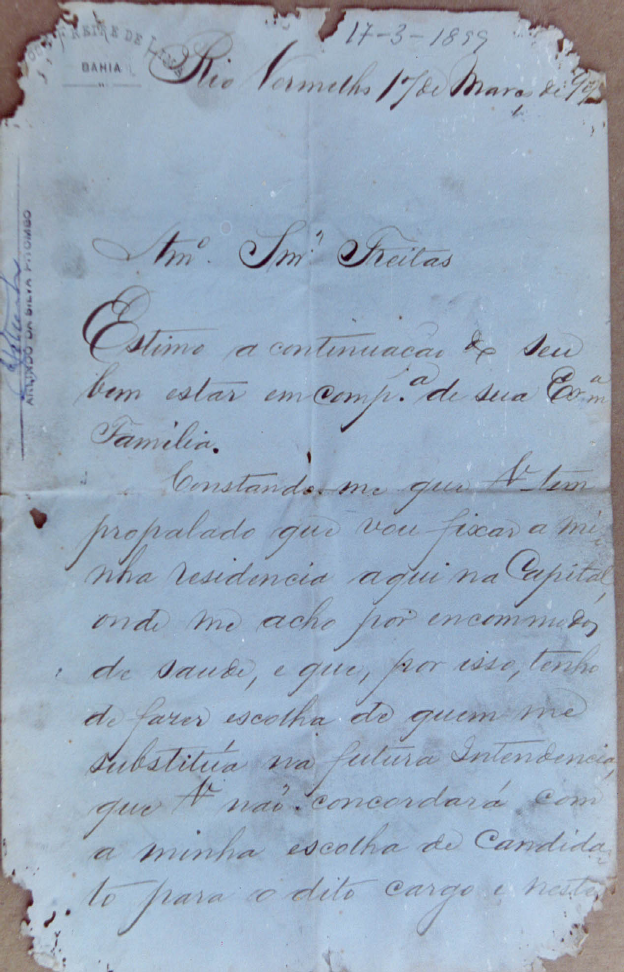 17-3-1899
FREIRE DE LIMA
BAHIA
Rio Vermelho 17 de Março de 99
ARLINDO DA SILVA PITOMBO
Amº. Snrº Freitas
Estimo a continuação de seu
bem estar em comp.ª de sua Ex.mª
Familia.
Constando-me que V. tem
propalado que vou fixar a mi
nha residencia aqui na Capital,
onde me acho por encommodos
de saude, e que, por isso, tenho
de fazer escolha de quem me
substitúa na futura Intendencia,
que V. não concordará com
a minha escolha de candida-
to para o dito cargo e neste